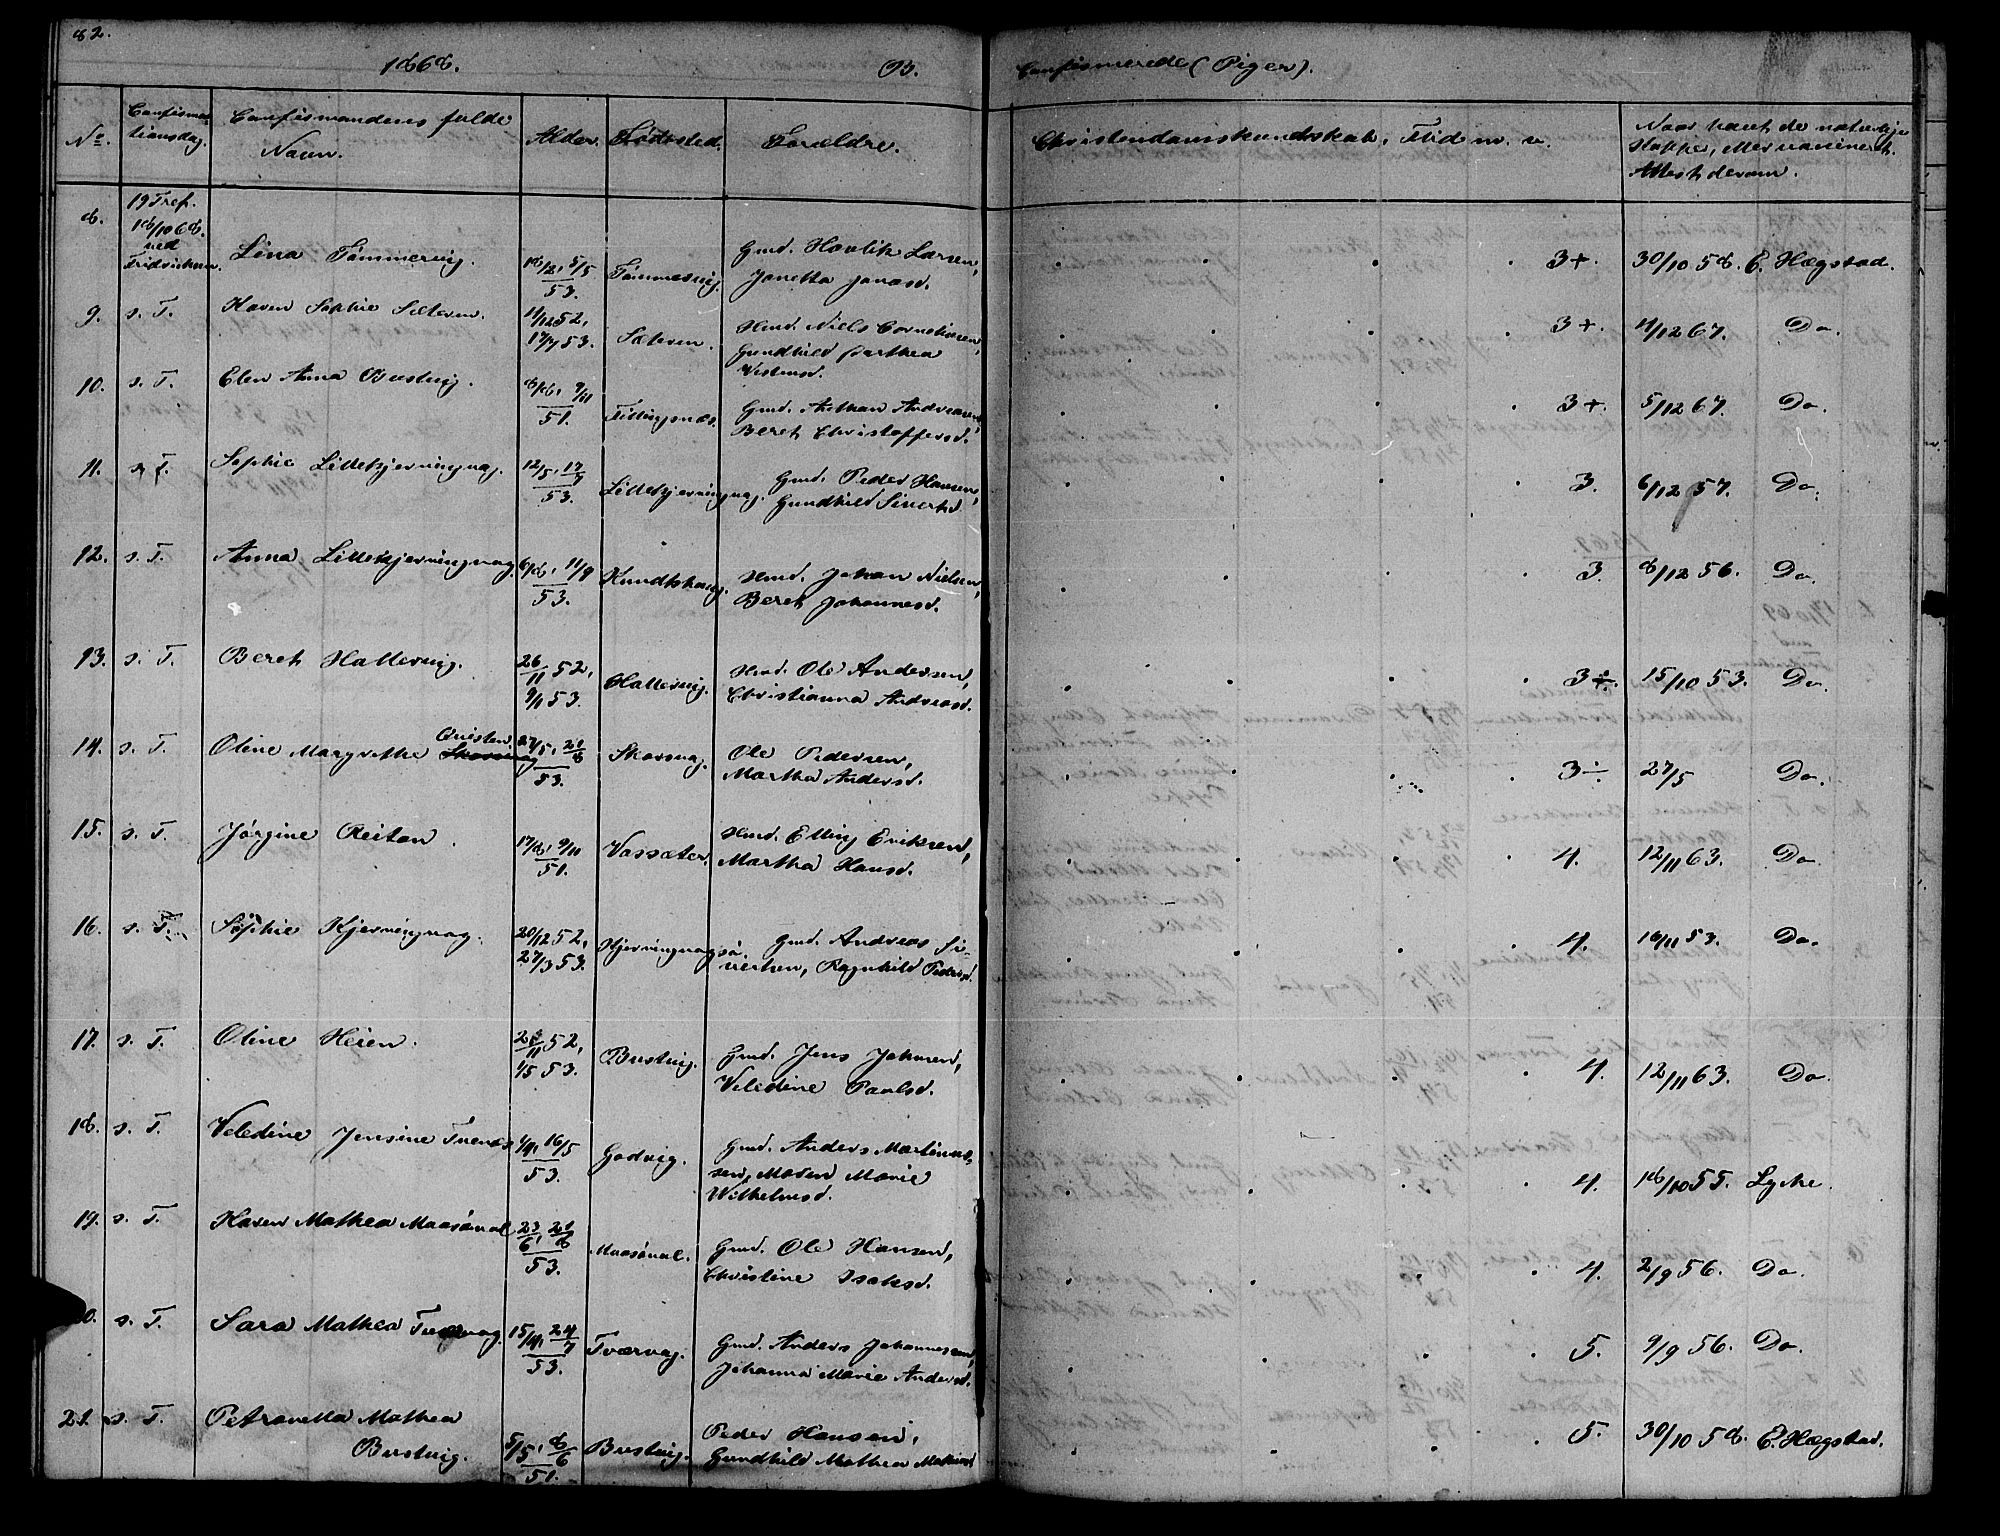 82.
1868.
B.
Confirmerede (Piger).
No.
Confirma-
tionsdag.
Confirmandens fulde
Navn.
Alder.
Fødested.
Forældre.
Christendomskundskab, Flid m. v.
Naar havt de naturlige
Kopper, eller vaccineret.
Attest derom.
8.
19 Tref.
18/10 68.
ved
Lina Tømmervig.
18/2, 5/5
53.
Tømmervig.
Gmd. Hovlik Larsen,
Janetta Jonasd.
3+.
30/10 58. E. Hægstad.
9. s. T. Karen Sophie Sæteren.
11/12 52,
17/7 53.
Sæteren.
Hmd. Niels Corneliusen,
Gundhild Dorthea
3+.
4/12 67. Do.
10. s. T. Elen Anna Bustvig.
8/8, 9/11
51.
Fillingsnæs.
Gmd. Arthan Andreasen,
Bereth Christoffersd.
3+.
5/12 67. Do.
11. s. T. Sophie Lillekjerringvag.
12/5, 17/7
53.
Lillekjerringvag.
Gmd. Peder Hansen,
Gundhild Sivertsd.
3.
6/12 57. Do.
12. s. T. Anna Lillekjerringvag.
6/8, 11/9
53.
Hmd. Johan Nielsen,
Bereth Johannesd.
3.
8/12 56. Do.
13. s. T. Bereth Hallervig.
26/11 52,
9/1 53.
Hallervig.
Hmd. Ole Andersen,
Christianna Andreasd.
3÷.
15/10 53. Do.
14. s. T. Oline Margrethe Qvisten
Skarsvag
27/5, 21/8
53.
Skarsvag.
Ole Pedersen,
Martha Andersd.
3÷.
27/5 Do.
15. s. T. Jørgine Reitan.
17/8, 9/10
51.
Vassæter.
Hmd. Elling Eriksen,
Martha Hansd.
4.
12/11 63. Do.
16. s. T. Sophie Kjerringvag.
20/12 52,
27/3 53.
Kjerringvagsø.
Gmd. Andreas Si-
vertsen, Ragnhild Pedersd.
4.
16/11 53. Do.
17. s. T. Oline Heien.
28/11 52,
1/5 53.
Bustvig.
Gmd. Jens Johnsen,
Veledine Paulsd.
4.
12/11 63. Do.
18. s. T. Veledine Jensine Tuenæs
1/4, 16/5
53.
Godvig.
Gmd. Anders Martinus-
sen, Maren Marie
Wilhelmsd.
4.
18/10 55. Lyche.
19. s. T. Karen Mathea Maasøval
23/6, 21/8
53.
Maasøval.
Gmd. Ole Hansen,
Christine Isaksd.
4.
2/9 56. Do.
0. s. T. Sara Mathea Tværvag.
15/4, 24/7
53.
Tværvag.
Gmd. Anders Johannesen,
Johanna Marie Andersd.
5.
9/9 56. Do.
21. s. T. Petronella Mathea
Bustvig.
5/5, 8/6
51.
Bustvig.
Peder Hansen,
Gundhild Mathea Mathiasd
5.
30/10 58. E. Hægstad.